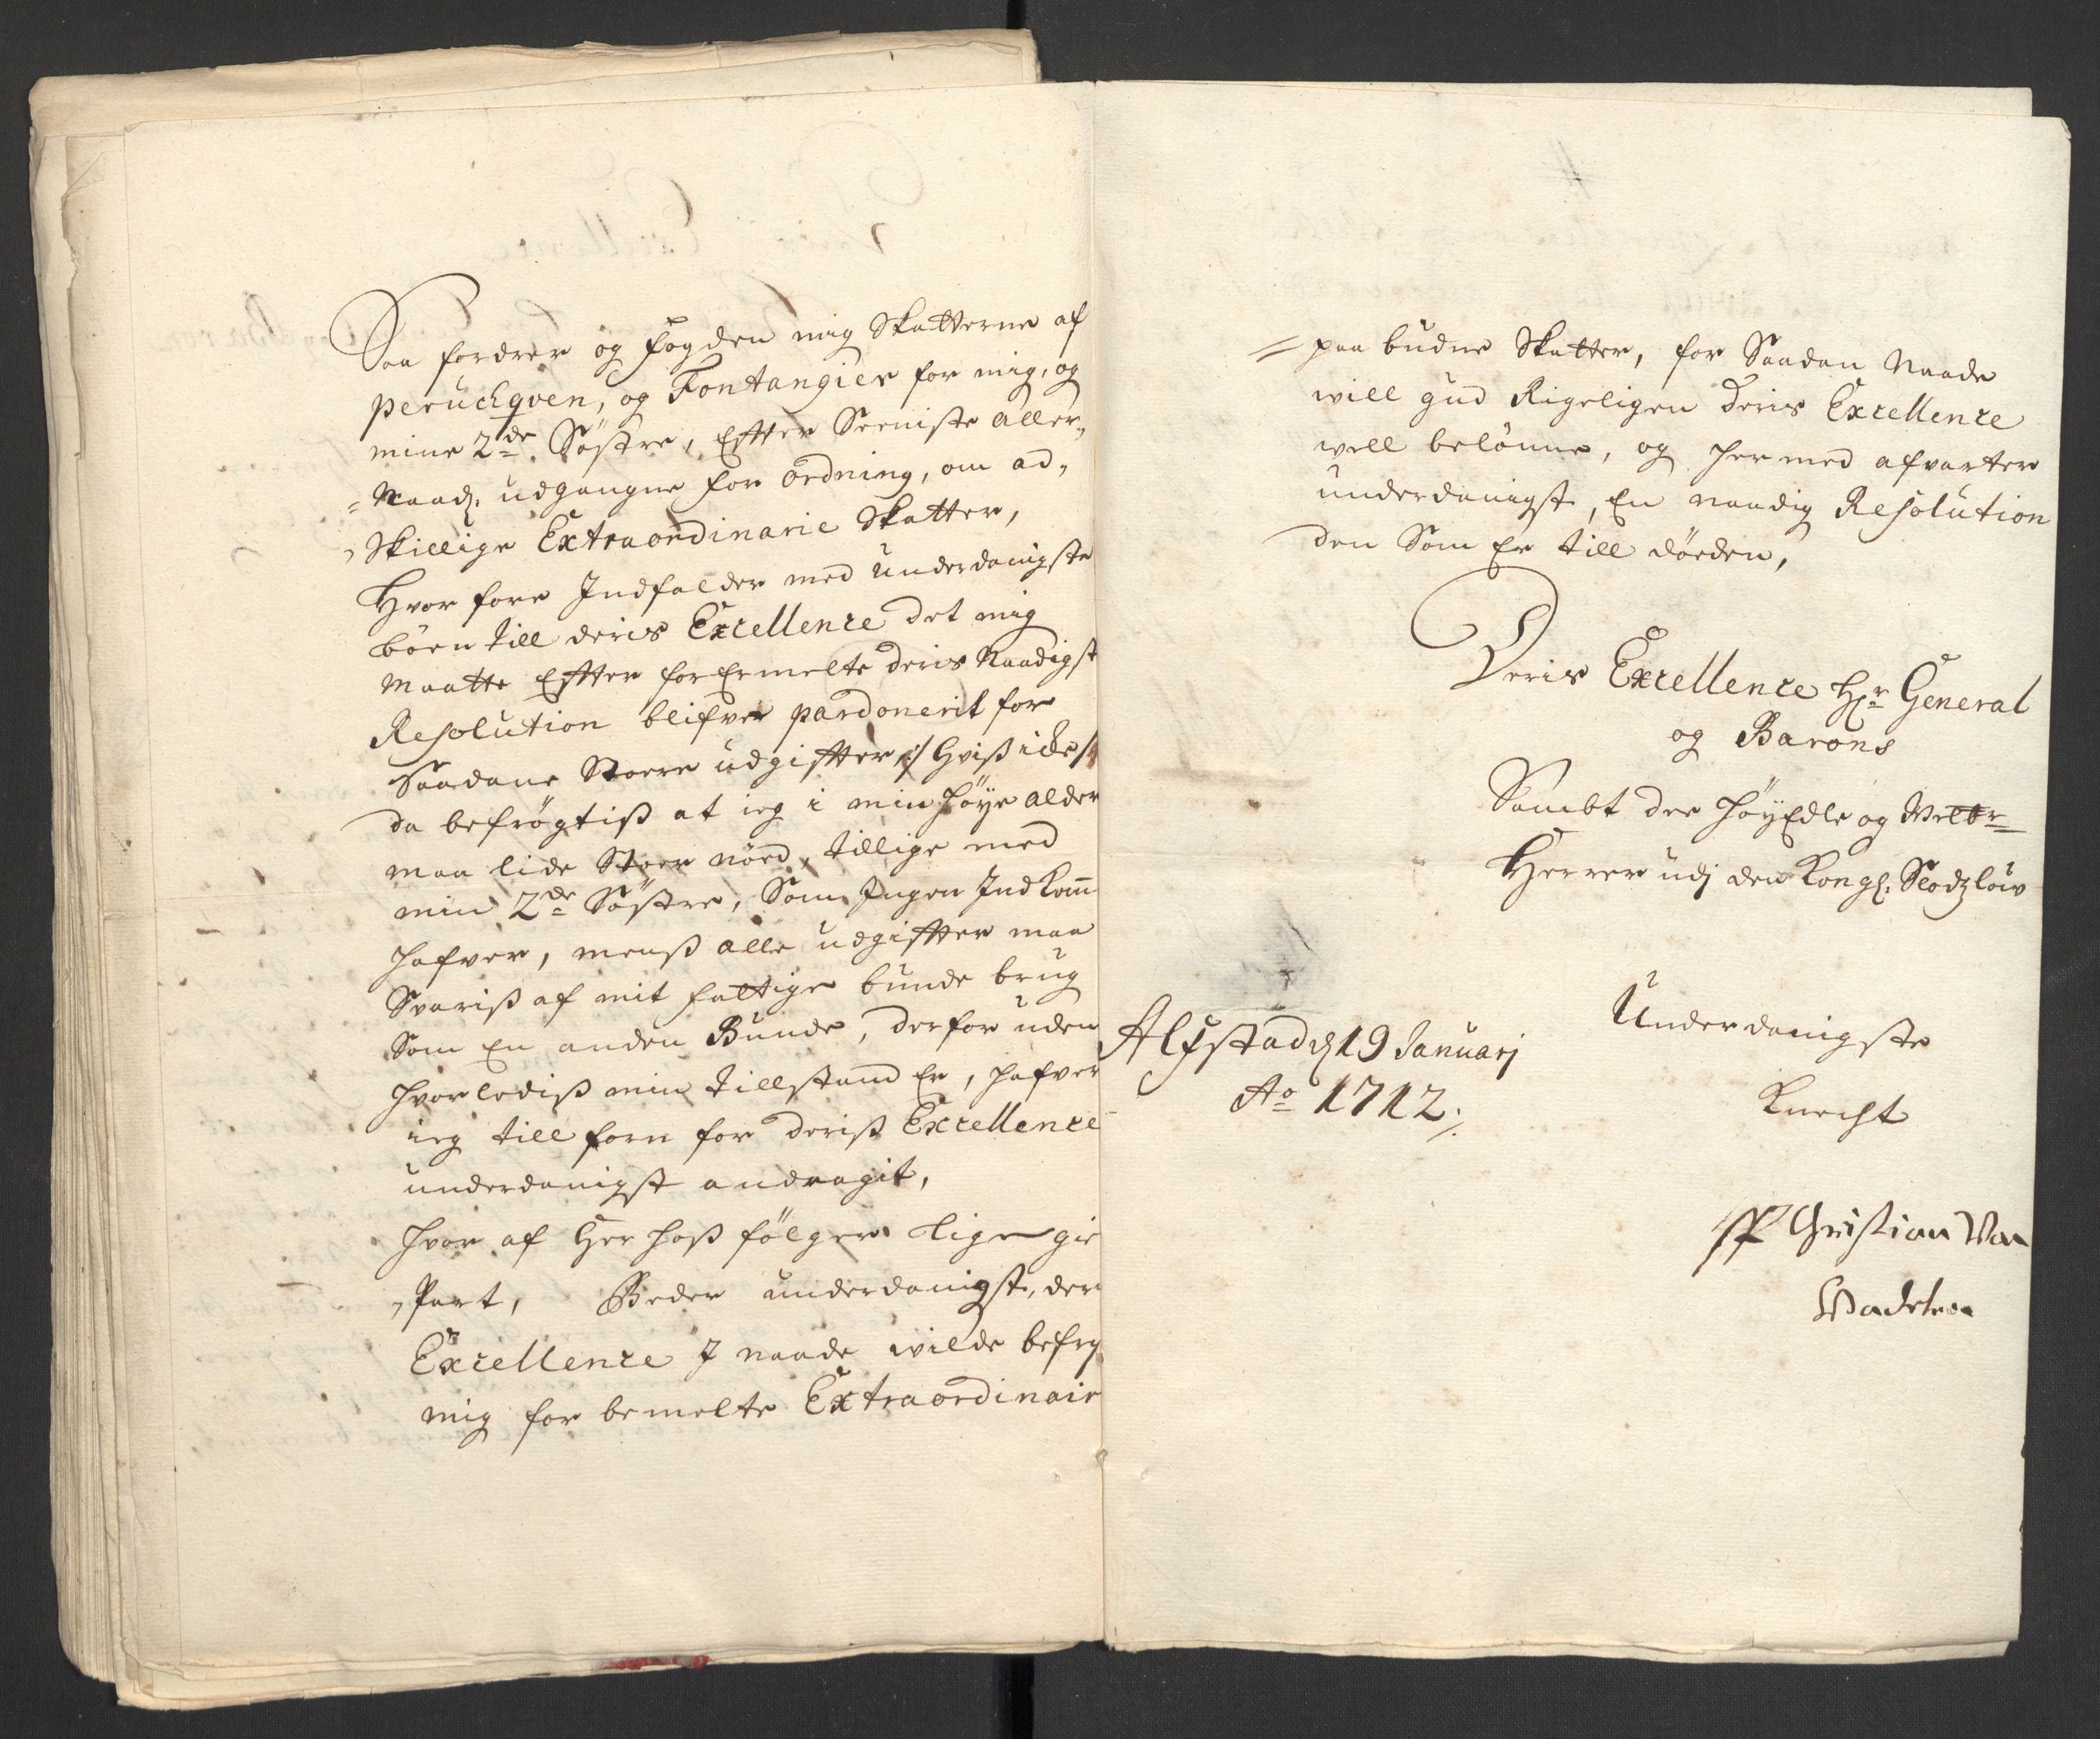 Saa fordrer og fogden mig Skatterne af
Peruchqven, og Fontangier for mig, og
mine 2de Söstre, Efter Seeniste aller„
„Naad. udgangne for ordning, om ad„
„Skillige Extraordinarie Skatter,
Hvor fore Indfalder med underdanigste
böen till deris Excellence det mig
maatte Efter for Ermelte deris Naadigst
Resolution blifver pardonerit for
Saadane Store udgifter :/ Hviß icke /:
da befrögtiß at ieg i min höye alder
maa lide Stor nöed, tillige med
min 2de Söstre, Som Ingen Indkom̅
hafver, menß alle udgifter maa
Svariß af mit fattige bunde brug
Som En anden Bunde, derfor uden
hvorlediß min tillstand Er, hafver
ieg till forn for deriß Excellence
underdanigst andragit,
hvor af Her hoß fölger lige gie
„Part, Beder underdanigst, der
Excellence I naade wilde befry
mig for bemelte Extraordinair
= paa budne Skatter, for Saadan Naade
will gud Rigeligen deris Excellence
well belönne, og her med afvarter
underdanigst, En naadig Resolution
den Som Er till döeden,
Deris Excellence Hr. General
og Barons
Sambt dee HöyEdle og Welbr=
Herrer udj den Kongl. Slodzlow
Underdanigste
Knecht
Christian Von
Alfstad d 19 Januarj
Ao 1712 ./.